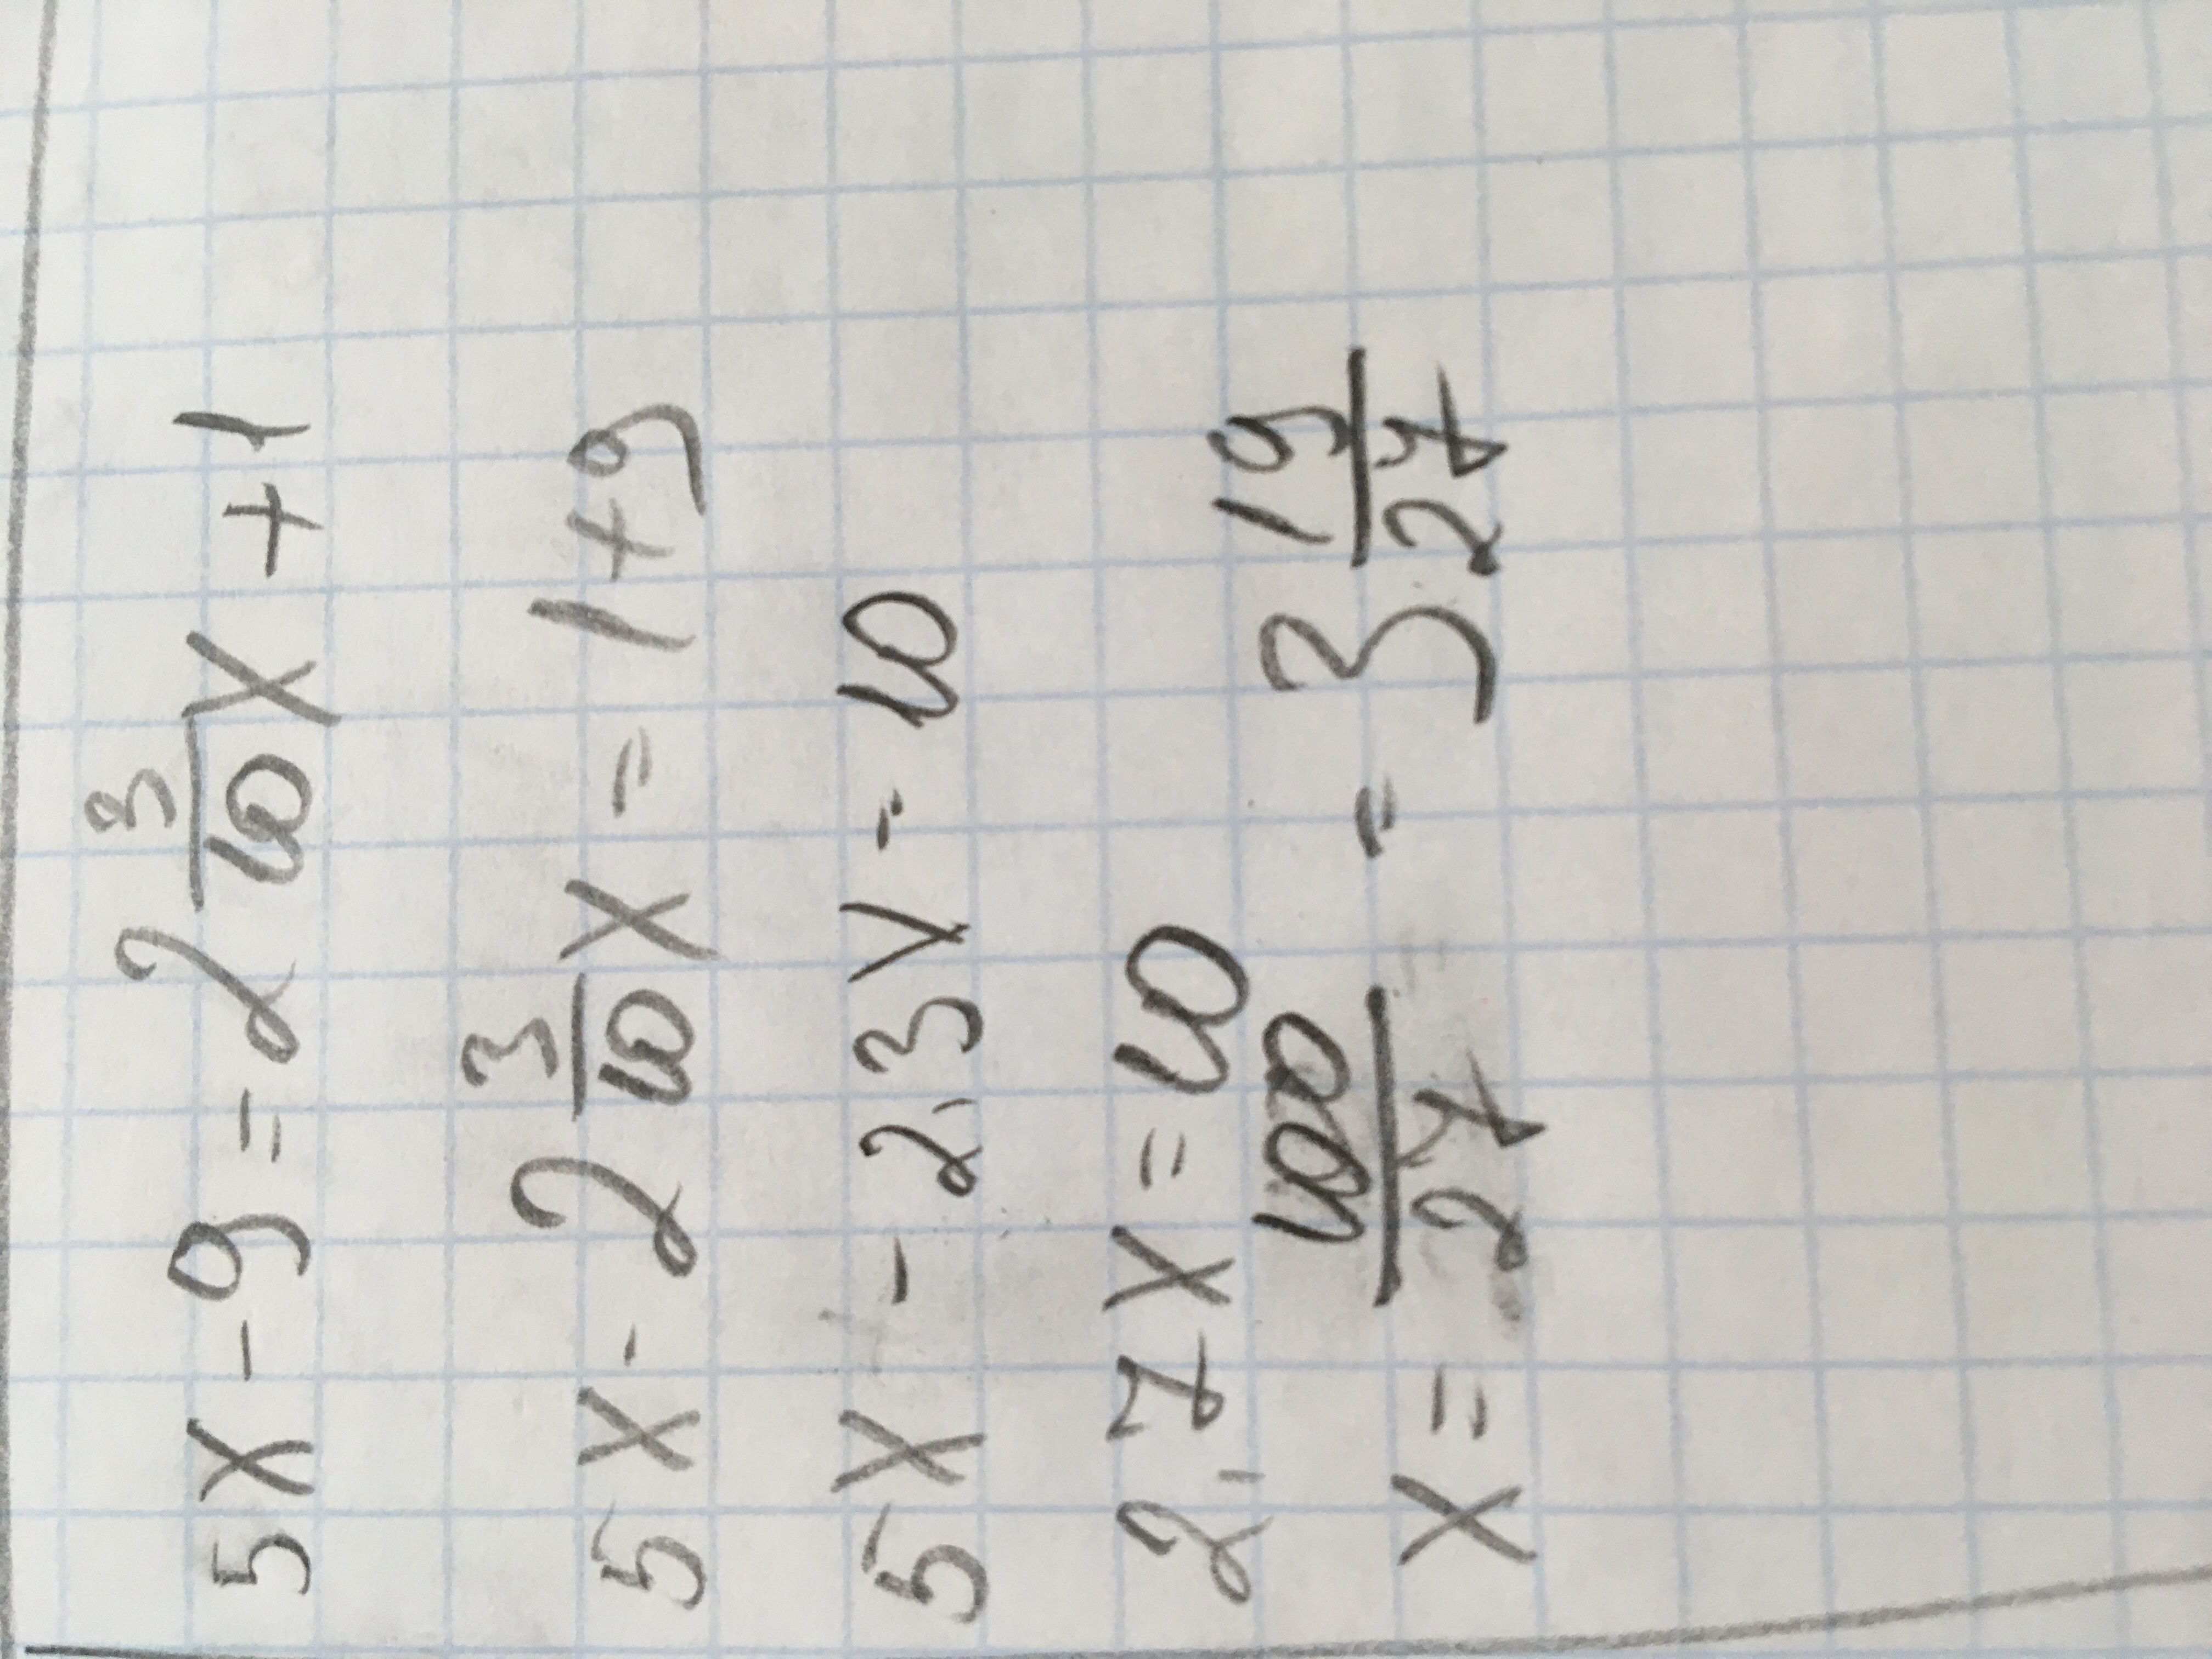 5x - 9 = 2 3/10 x + 1
5x - 2 3/10 x = 1 + 9
5x - 2,3x = 10
2,7x = 10
x = 100/27 = 3 19/27